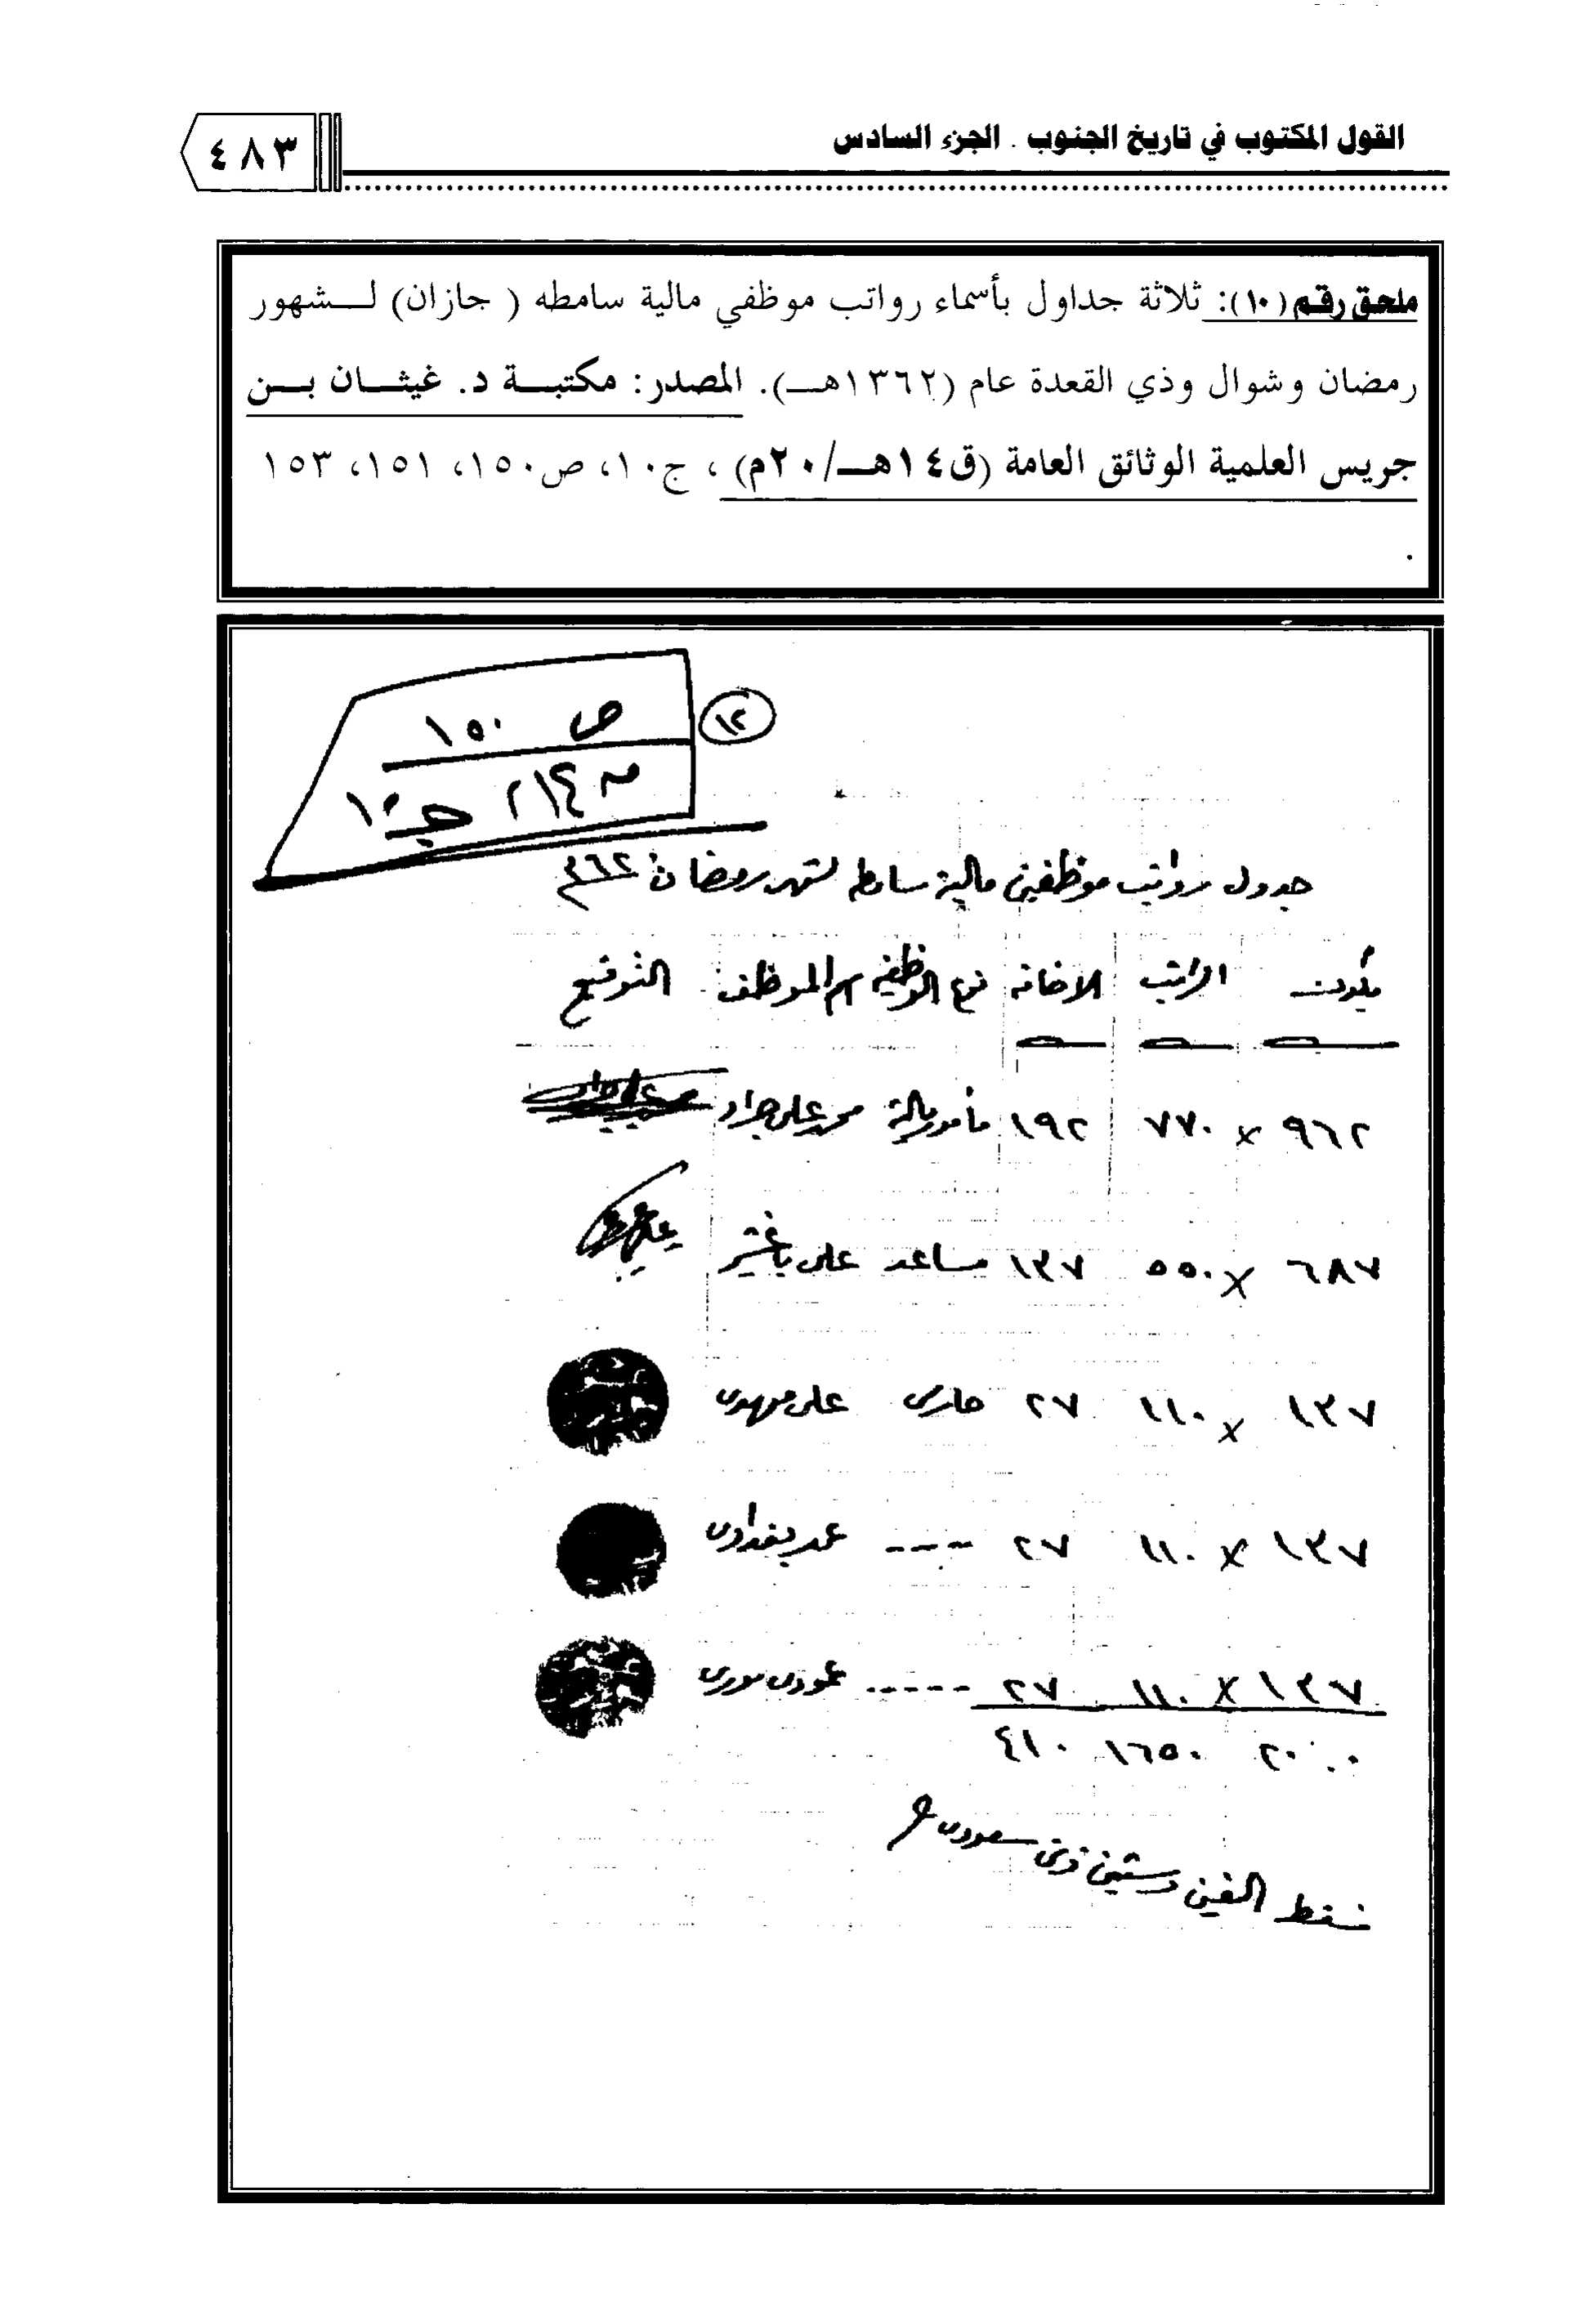 القول المكتوب في تاريخ الجنوب . الجزء السادس
٤٨٣
ملحق رقم (١٠): ثلاثة جداول بأسماء رواتب موظفي مالية سامطه ( جازان) لــشهور
رمضان وشوال وذي القعدة عام (١٣٦٢هــ). المصدر: مكتبــة د. غيثــان بــن
جريس العلمية الوثائق العامة (ق١٤هــ/٢٠م) ، ج١٠، ص١٥٠، ١٥١، ١٥٣
.
ص ١٥٠
١٢
ج ١٠
جدول رواتب موظفين مالية سامطه لشهر رمضان ٣٦٢
يكون الراتب الاضافه نوع الوظيفه اسم الموظف التوقيع
٩٦٢ × ٧٧٠ ١٩٢ مأمور مالية محمد علي جراد
٦٨٧ × ٥٥٠ ١٣٧ مساعد علي باغشير
١٣٧ × ١١٠ ٢٧ حارس علي مهدي
١٣٧ × ١١٠ ٢٧ ---- بغدادي
١٣٧ × ١١٠ ٢٧ -----
٢٠٦٠ ١٦٥٠ ٤١٠
فقط الفين وستين قرش سعودي